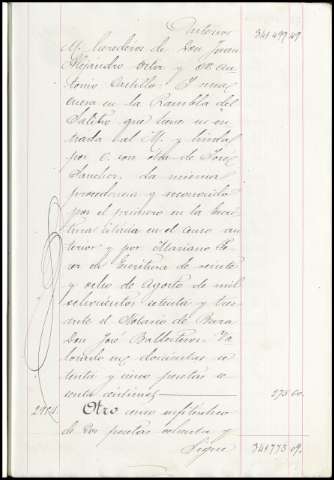 Anterior 341.497.49
M. herederos de Don Juan
Alejandro Orta y D. An
tonio Castillo. Y una
cueva en la Rambla del
Salitre, que tiene su en
trada al M. y linda
por O. con otra de José
Sanchez. La misma
procedencia y reconocido
por el primero en la Escri
tura citada en el censo an
terior y por Mariano
por Escritura de veinte
y ocho de Agosto de mil
ochocientos setenta y tres
ante el Notario de Baza
Don José Ballesteros. Va
lorado en doscientas se
tenta y cinco pesetas se
senta céntimos 275 60.
Otro censo enfitéutico
de dos pesetas ochenta y
Sigue 341.773 09.